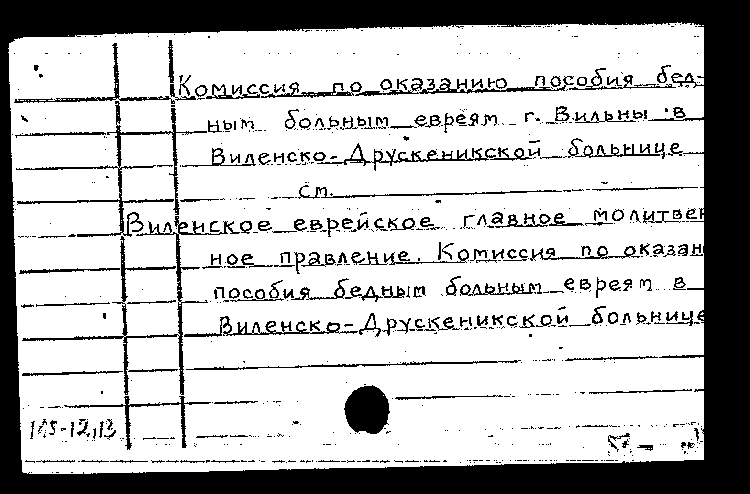 Комиссия по оказанию пособия бед-
ным больным евреям г. Вильны в
Виленско-Друскеникской больнице
см.
Виленское еврейское главное молитвен
ное правление. Комиссия по оказан
пособия бедным больным евреям в
Виленско-Друскеникской больнице
105-12,13